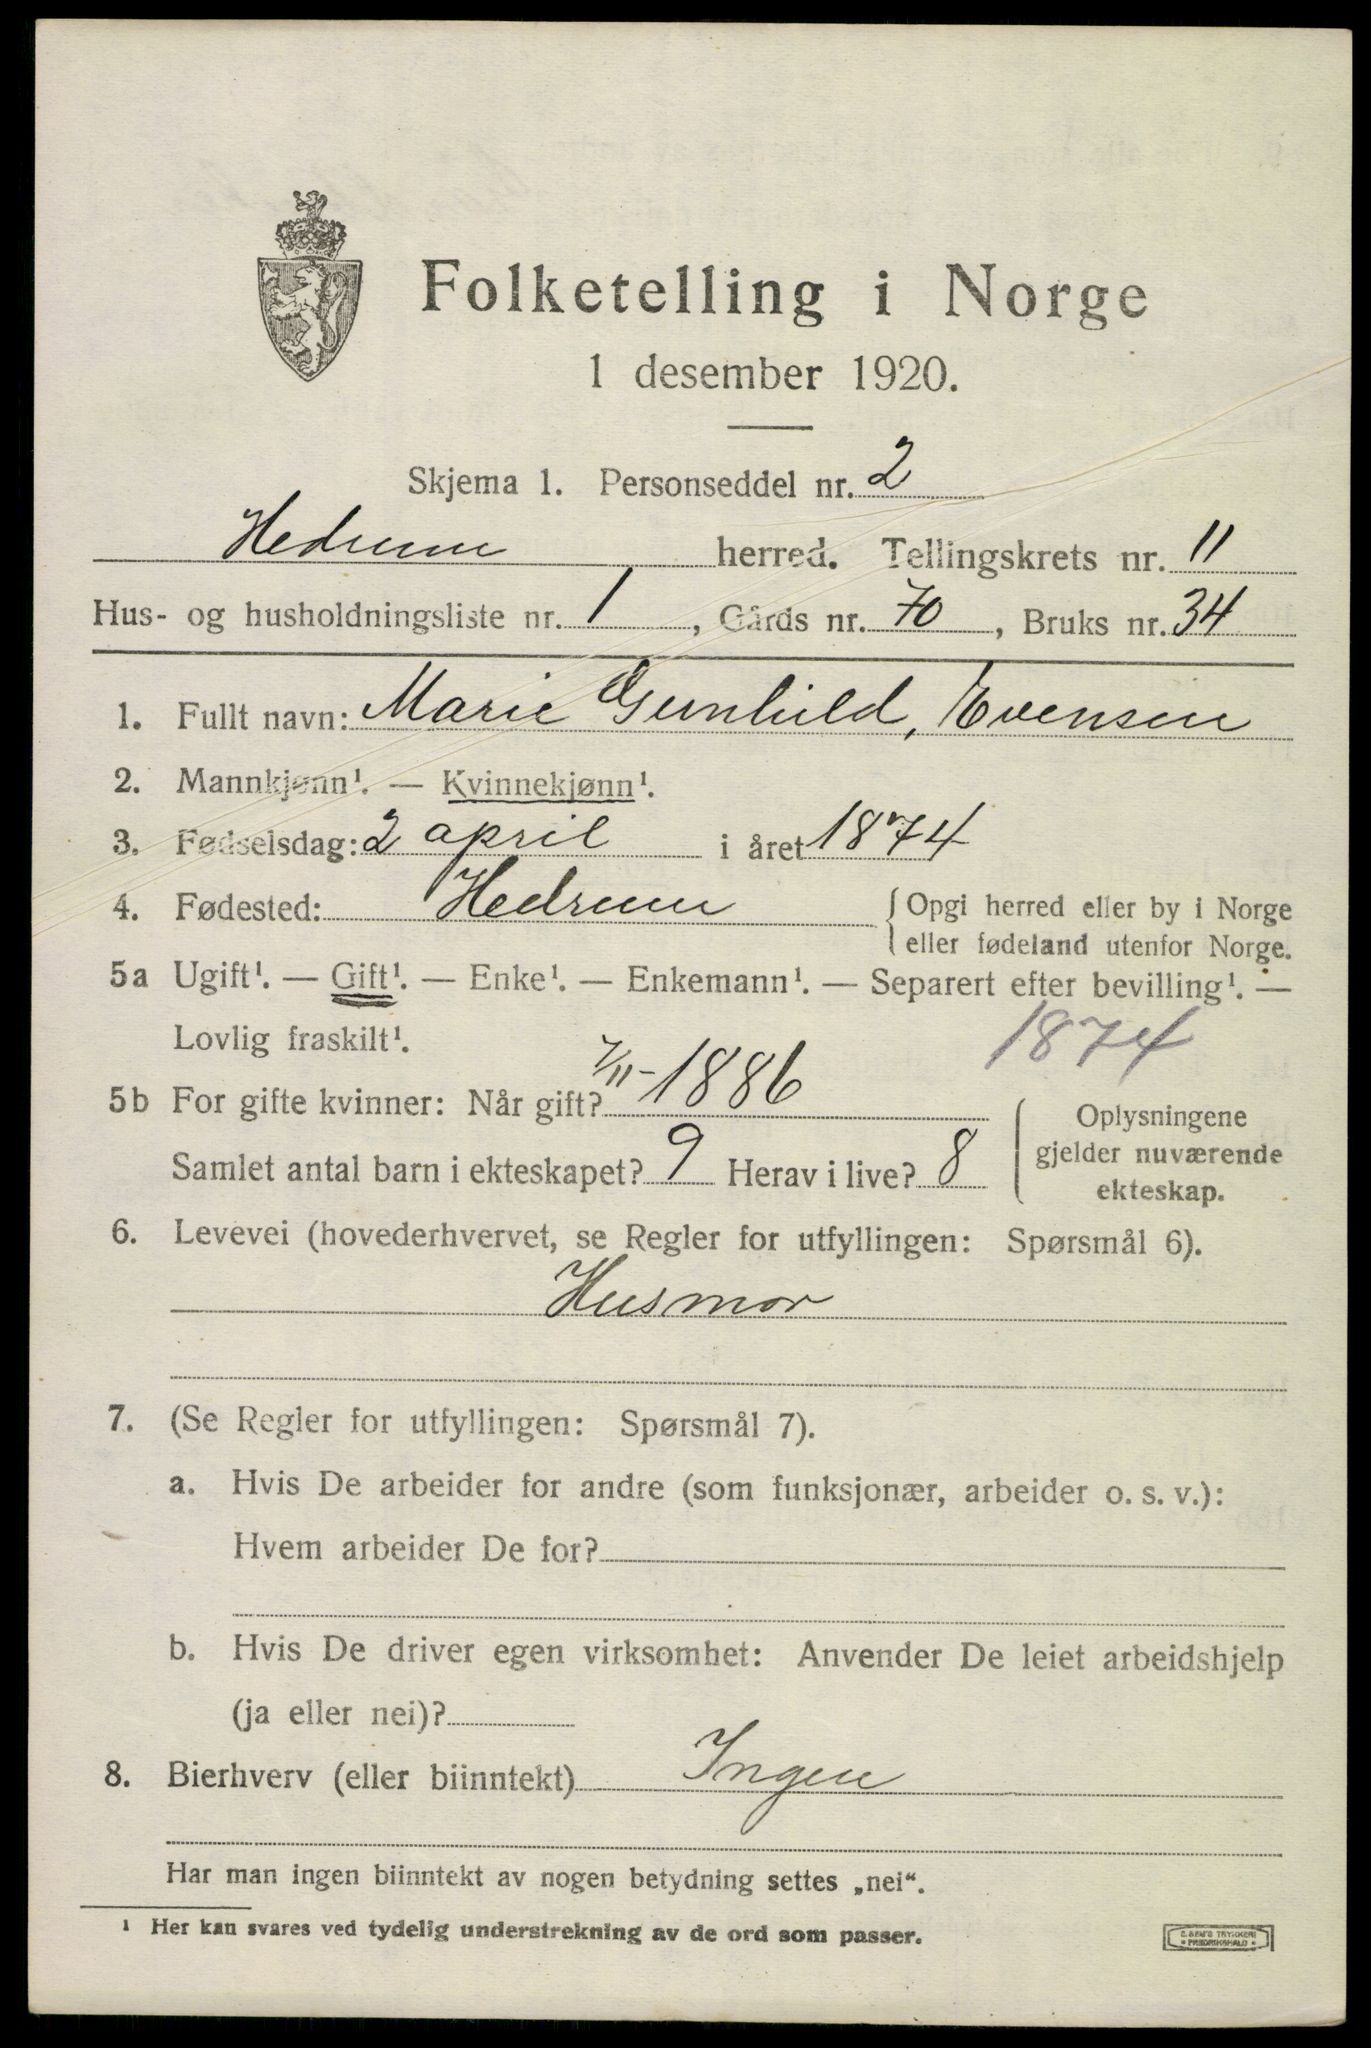 Folketelling i Norge
1 desember 1920.
Skjema 1. Personseddel nr. 2
Hedrum herred. Tellingskrets nr. 11
Hus- og husholdningsliste nr. 1, Gårds nr. 70, Bruks nr. 34
1. Fullt navn: Marie Gunhild, Evensen
2. Mannkjønn¹. — Kvinnekjønn¹.
3. Fødselsdag: 2 april i året 1874
4. Fødested: Hedrum { Opgi herred eller by i Norge
eller fødeland utenfor Norge.
5a Ugift¹. — Gift¹. — Enke¹. — Enkemann¹. — Separert efter bevilling¹. —
Lovlig fraskilt¹. 1874
5b For gifte kvinner: Når gift? 7/11-1886
Samlet antal barn i ekteskapet? 9 Herav i live? 8
Oplysningene
gjelder nuværende
ekteskap.
6. Levevei (hovederhvervet, se Regler for utfyllingen: Spørsmål 6).
Husmor
7. (Se Regler for utfyllingen: Spørsmål 7).
a. Hvis De arbeider for andre (som funksjonær, arbeider o. s. v.):
Hvem arbeider De for?
b. Hvis De driver egen virksomhet: Anvender De leiet arbeidshjelp
(ja eller nei)?
8. Bierhverv (eller biinntekt) Ingen
Har man ingen biinntekt av nogen betydning settes „nei“.
¹ Her kan svares ved tydelig understrekning av de ord som passer.
E. SEM'S TRYKKERI
FREDRIKSHALD